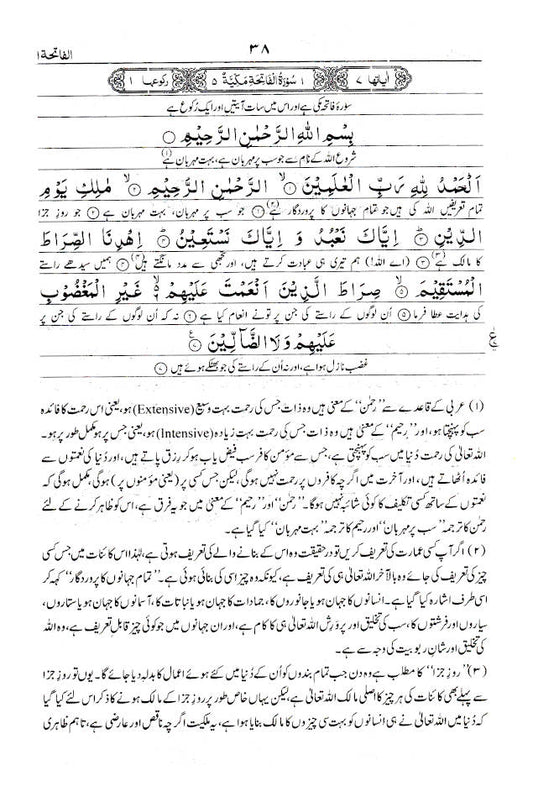 الفاتحة ۱
۳۸
اٰیاتها ۷
۱ سُوْرَةُ الْفَاتِحَةِ مَكِّيَّةٌ ۵
رکوعها ۱
سورۂ فاتحہ مکی ہے اور اس میں سات آیتیں اور ایک رُکوع ہے
بِسْمِ اللّٰهِ الرَّحْمٰنِ الرَّحِيْمِ
شروع اللہ کے نام سے جو سب پر مہربان ہے، بہت مہربان ہے (۱)
اَلْحَمْدُ لِلّٰهِ رَبِّ الْعٰلَمِيْنَ ۙ﴿۱﴾ الرَّحْمٰنِ الرَّحِيْمِ ۙ﴿۲﴾ مٰلِكِ يَوْمِ
تمام تعریفیں اللہ کی ہیں جو تمام جہانوں کا پروردگار ہے (۲) ﴿۱﴾ جو سب پر مہربان، بہت مہربان ہے ﴿۲﴾ جو روزِ جزا
الدِّيْنِ ؕ﴿۳﴾ اِيَّاكَ نَعْبُدُ وَ اِيَّاكَ نَسْتَعِيْنُ ؕ﴿۴﴾ اِهْدِنَا الصِّرَاطَ
کا مالک ہے (۳) ﴿۳﴾ (اے اللہ!) ہم تیری ہی عبادت کرتے ہیں، اور تجھی سے مدد مانگتے ہیں (۴) ﴿۴﴾ ہمیں سیدھے راستے
الْمُسْتَقِيْمَ ۙ﴿۵﴾ صِرَاطَ الَّذِيْنَ اَنْعَمْتَ عَلَيْهِمْ ۙ﴿۶﴾ غَيْرِ الْمَغْضُوْبِ
کی ہدایت عطا فرما ﴿۵﴾ اُن لوگوں کے راستے کی جن پر تو نے انعام کیا ہے ﴿۶﴾ نہ کہ اُن لوگوں کے راستے کی جن پر
عَلَيْهِمْ وَلَا الضَّآلِّيْنَ ﴿۷﴾
غضب نازل ہوا ہے، اور نہ اُن کے راستے کی جو بھٹکے ہوئے ہیں ﴿۷﴾
(۱) عربی کے قاعدے سے ”رحمٰن“ کے معنی ہیں وہ ذات جس کی رحمت بہت وسیع (Extensive) ہو، یعنی اس رحمت کا فائدہ
سب کو پہنچتا ہو، اور ”رحیم“ کے معنی ہیں وہ ذات جس کی رحمت بہت زیادہ (Intensive) ہو، یعنی جس پر ہو مکمل طور پر ہو۔
اللہ تعالیٰ کی رحمت دُنیا میں سب کو پہنچتی ہے، جس سے مؤمن کافر سب فیض یاب ہو کر رزق پاتے ہیں، اور دُنیا کی نعمتوں سے
فائدہ اُٹھاتے ہیں، اور آخرت میں اگرچہ کافروں پر رحمت نہیں ہوگی، لیکن جس کسی پر (یعنی مؤمنوں پر) ہوگی، مکمل ہوگی کہ
نعمتوں کے ساتھ کسی تکلیف کا کوئی شائبہ نہیں ہوگا۔ ”رحمٰن“ اور ”رحیم“ کے معنی میں جو یہ فرق ہے، اس کو ظاہر کرنے کے لئے
رحمٰن کا ترجمہ ”سب پر مہربان“ اور رحیم کا ترجمہ ”بہت مہربان“ کیا گیا ہے۔
(۲) اگر آپ کسی عمارت کی تعریف کریں تو درحقیقت وہ اس کے بنانے والے کی تعریف ہوتی ہے، لہٰذا اس کائنات میں جس کسی
چیز کی تعریف کی جائے وہ بالآخر اللہ تعالیٰ ہی کی تعریف ہے، کیونکہ وہ چیز اسی کی بنائی ہوئی ہے۔ ”تمام جہانوں کا پروردگار“ کہہ کر
اسی طرف اشارہ کیا گیا ہے۔ انسانوں کا جہان ہو یا جانوروں کا، جمادات کا جہان ہو یا نباتات کا، آسمانوں کا جہان ہو یا ستاروں،
سیاروں اور فرشتوں کا، سب کی تخلیق اور پرورِش اللہ تعالیٰ ہی کا کام ہے، اور ان جہانوں میں جو کوئی چیز قابلِ تعریف ہے، وہ اللہ
کی تخلیق اور شانِ ربوبیت کی وجہ سے ہے۔
(۳) ”روزِ جزا“ کا مطلب ہے وہ دن جب تمام بندوں کو اُن کے دُنیا میں کئے ہوئے اعمال کا بدلہ دیا جائے گا۔ یوں تو روزِ جزا
سے پہلے بھی کائنات کی ہر چیز کا اصلی مالک اللہ تعالیٰ ہے، لیکن یہاں خاص طور پر روزِ جزا کے مالک ہونے کا ذکر اس لئے کیا گیا
کہ دُنیا میں اللہ تعالیٰ نے ہی انسانوں کو بہت سی چیزوں کا مالک بنایا ہوا ہے، یہ ملکیت اگرچہ ناقص اور عارضی ہے، تاہم ظاہری